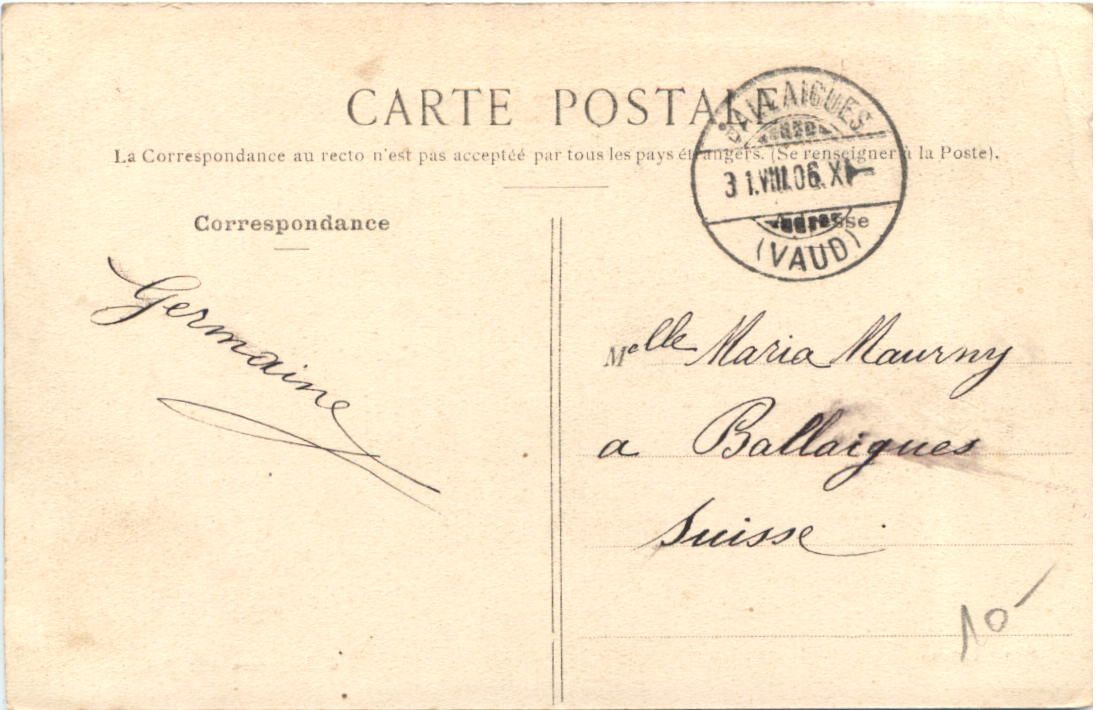 CARTE POSTALE
La Correspondance au recto n'est pas acceptée par tous les pays étrangers. (Se renseigner à la Poste).
BALLAIGUES
31.VIII.06.XI
(VAUD)
Correspondance
Adresse
Germaine
Melle Maria Maurny
a Ballaigues
Suisse
10-